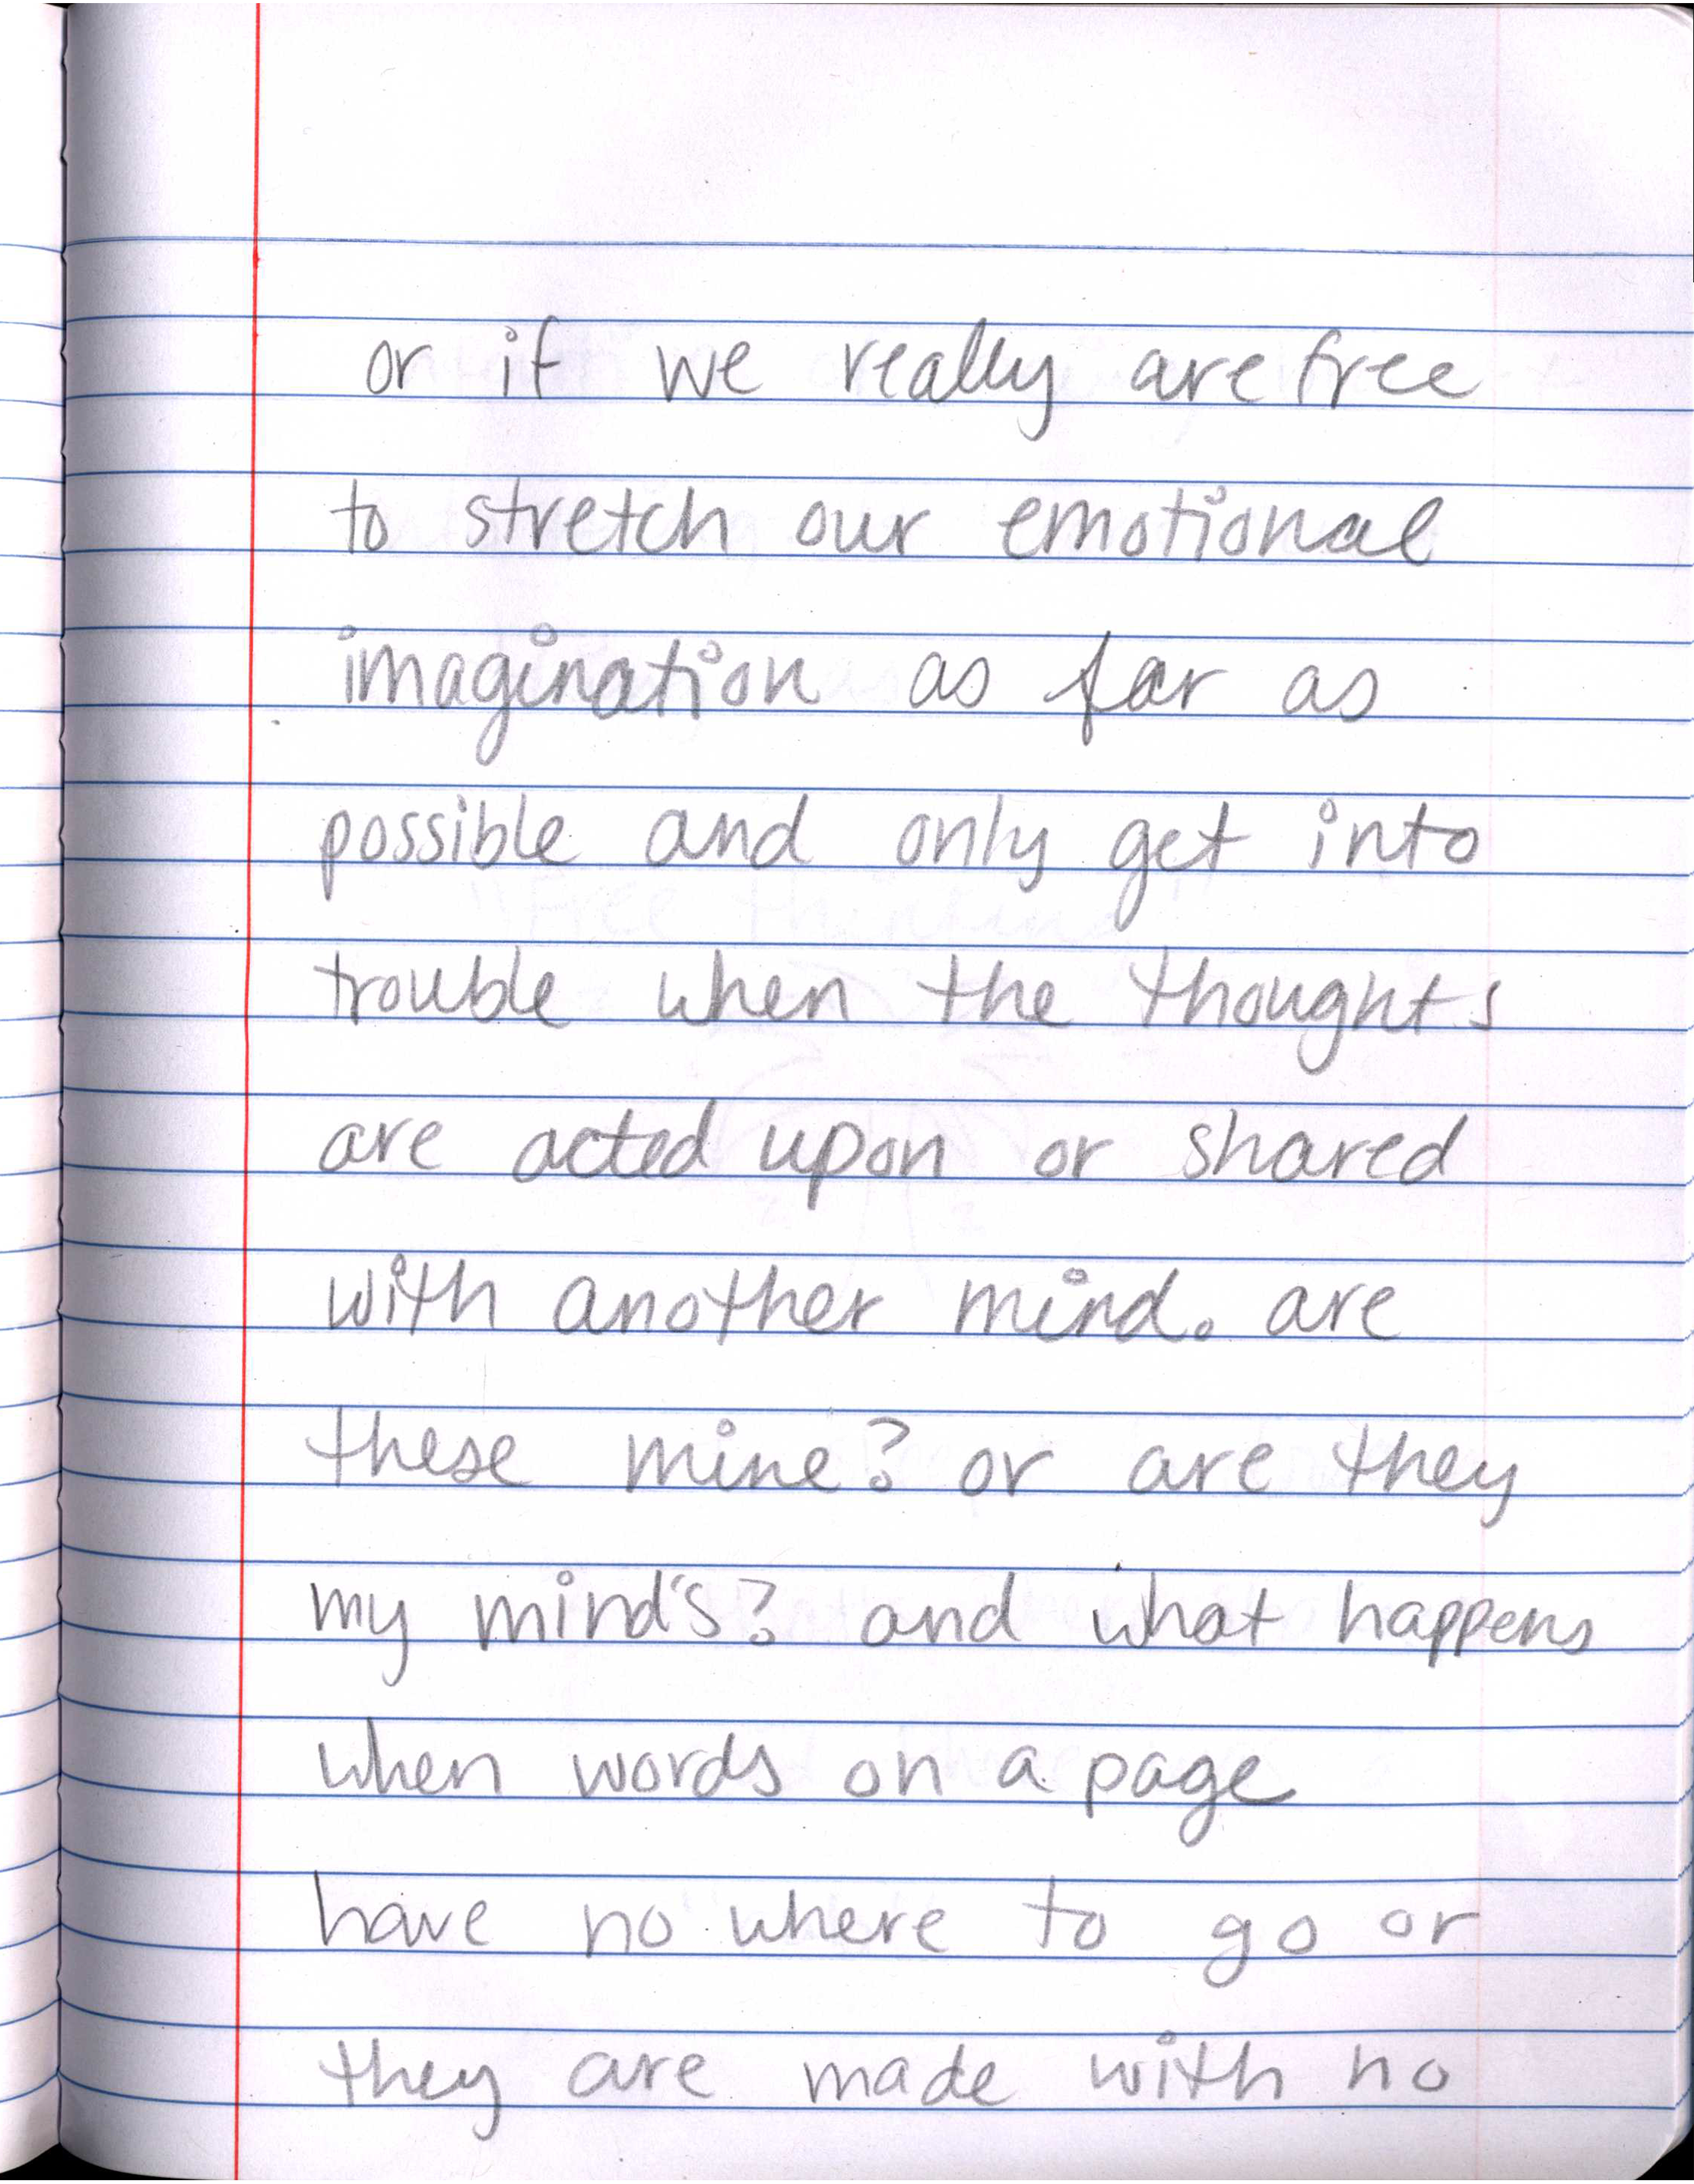 or if we really are free
to stretch our emotional
imagination as far as
possible and only get into
trouble when the thoughts
are acted upon or shared
with another mind. are
these mine? or are they
my mind's? and what happens
when words on a page
have no where to go or
they are made with no